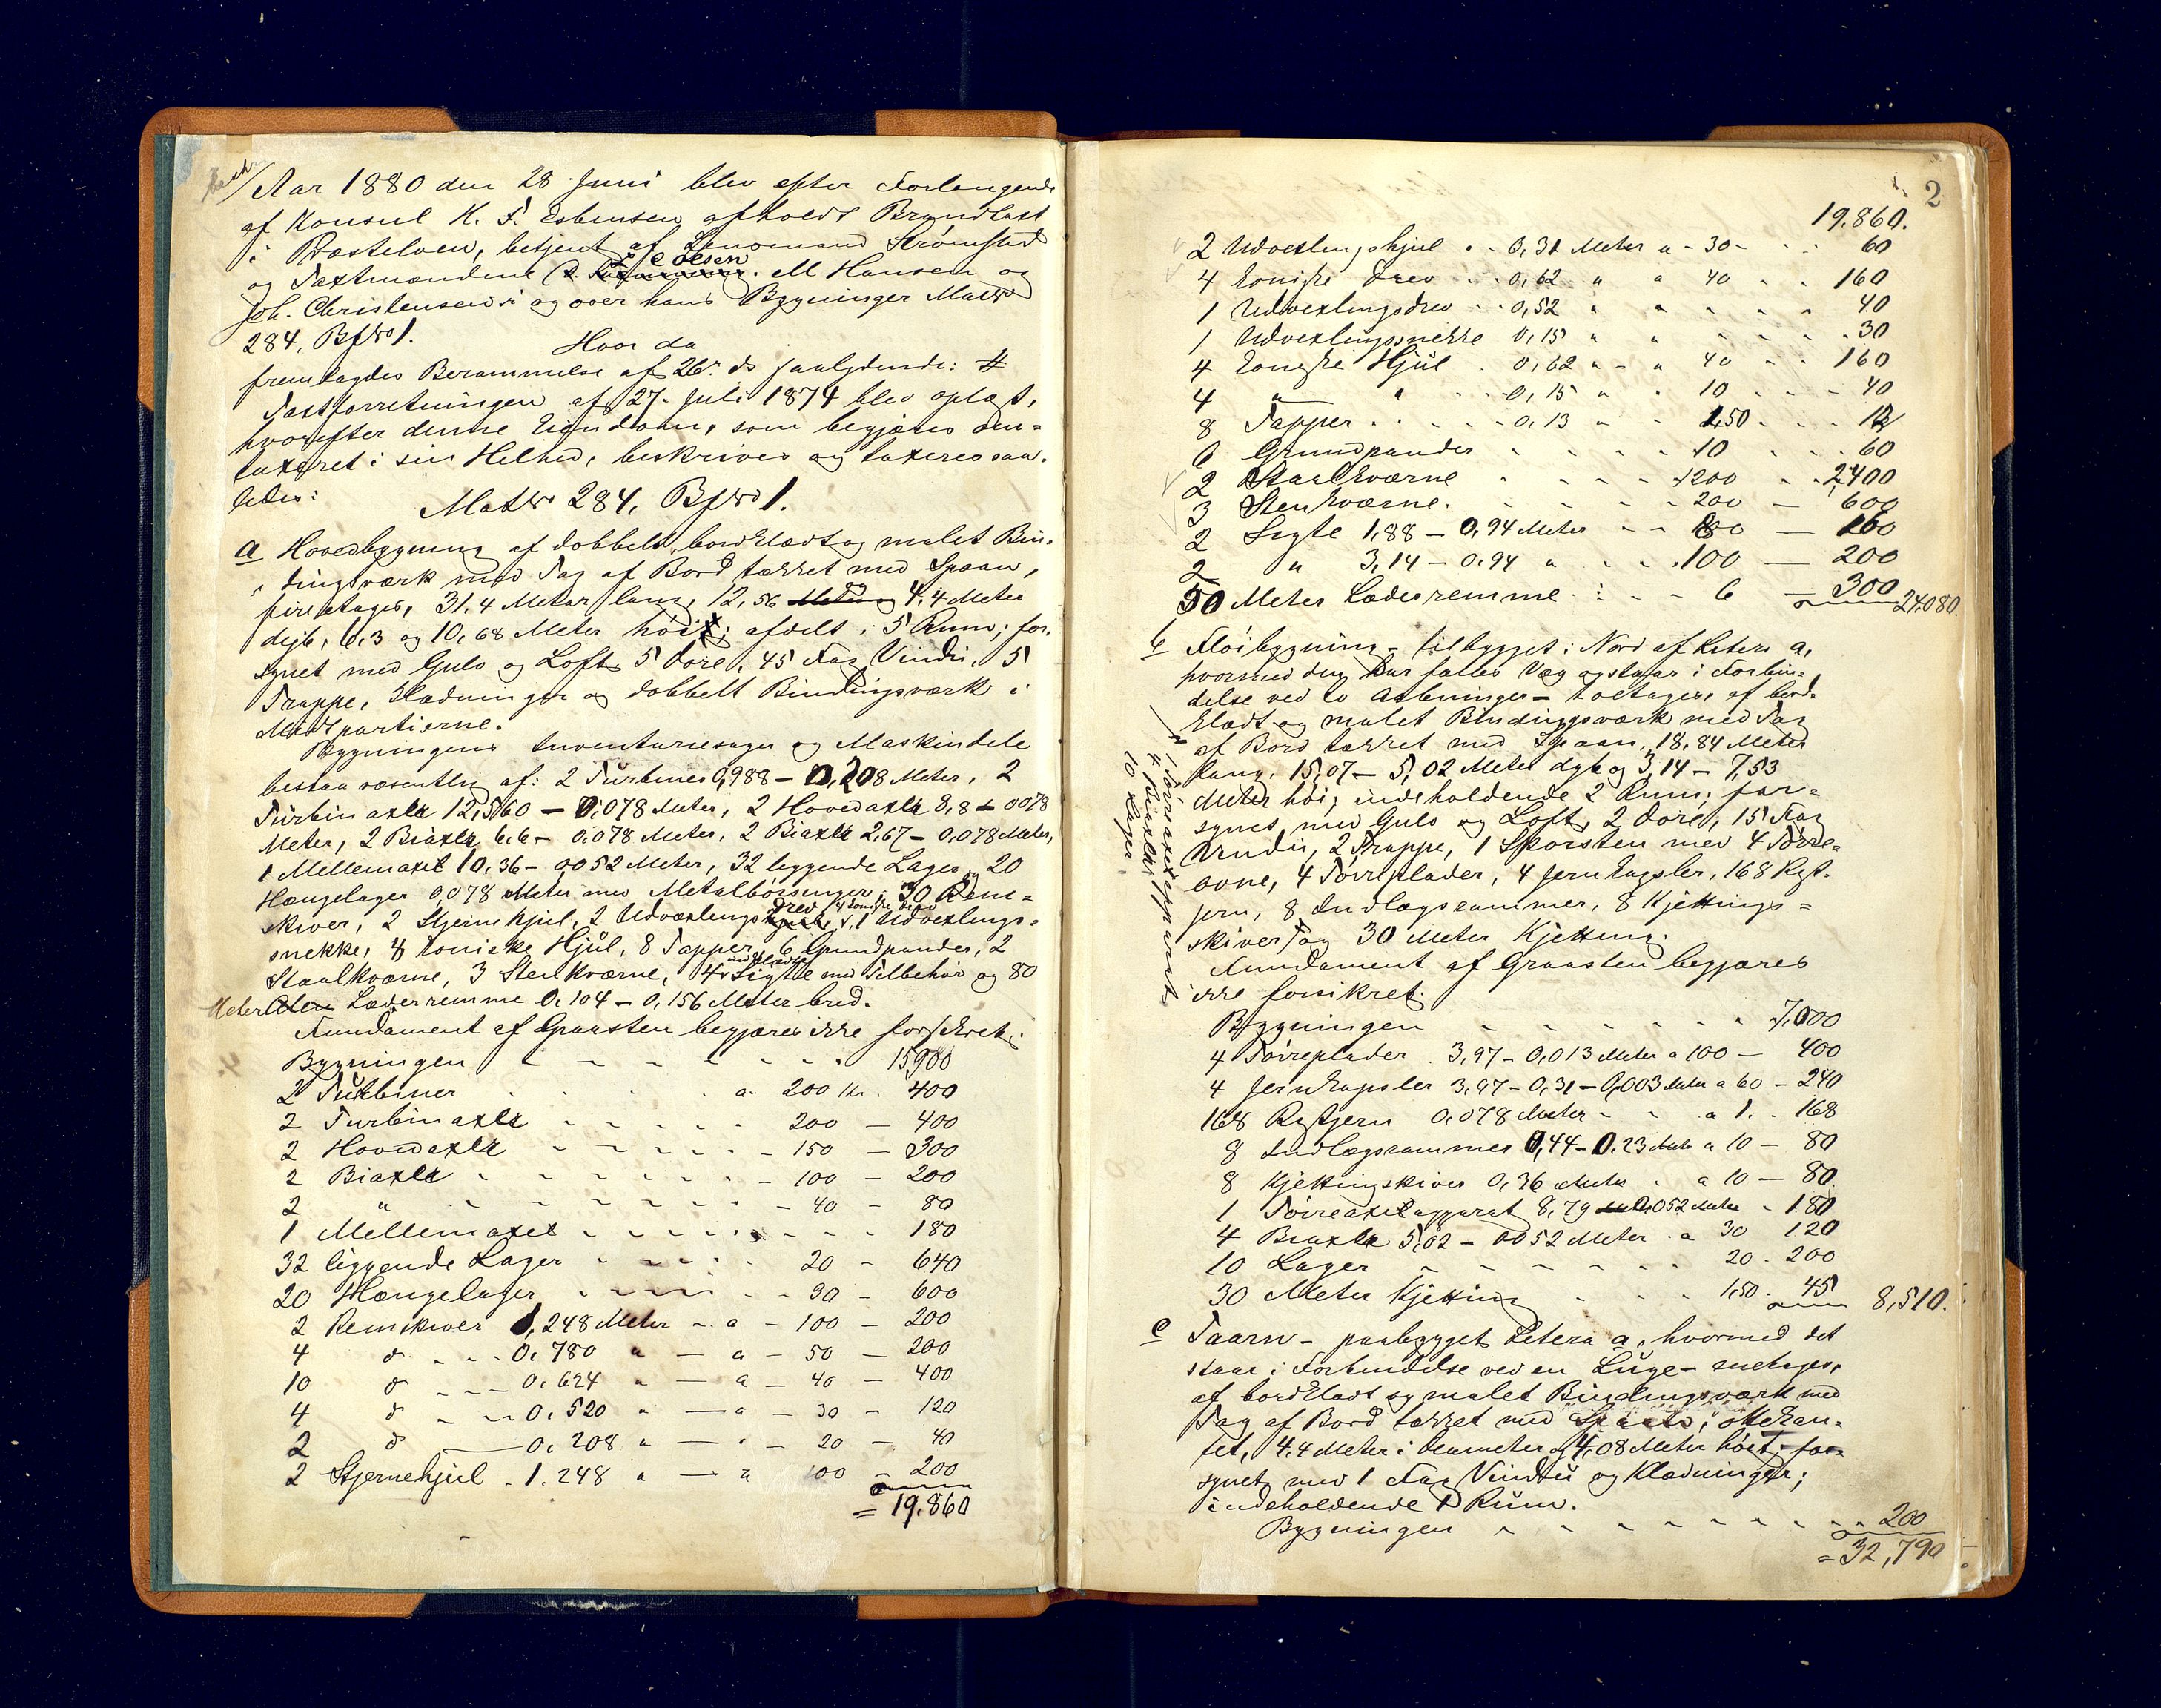 Aar 1880 den 28 Juni blev efter Forlangende
af Konsul K. F. Esbensen afholdt Brandtaxt
i Præstelven, betjent af Lensmand Strømsted
og Taxtmændene L C Olsen. M Hansen og
Joh. Christensen i og over hans Bygninger Matr
284, BfNo 1.
Hvor da
fremlagdes Berammelse af 26. ds saalydende: #
Taxtforretningen af 27. Juli 1874 blev oplæst,
hvorefter denne Eiendom, som begjæres om-
taxeret i sin Helhed, beskrives og taxeres saa-
ledes:
MatNo 284, BfNo 1.
a Hovedbygning af dobbelt, bordklædt og malet Bin-
dingsværk med Tag af Bord tækket med Spaan,
fire etages, 31,4 Meter lang, 12,56 og 4,4 Meter
dyb, 6,3 og 10,68 Meter høi; afdelt i 5 Rum; for-
synet med Gulv og Loft, 5 Døre, 45 Fag Vindu, 5
Trappe, Klædninger og dobbelt Bindingsværk i
Midtpartierne.
Bygningens Inventariesager og Maskindele
bestaa væsentlig af: 2 Turbiner 0,988 – 0,208 Meter, 2
Turbinaxle 12,560 – 0,078 Meter, 2 Hovedaxle 8,8 – 0078
Meter, 2 Biaxle 6,6 – 0,078 Meter, 2 Biaxle 2,67 – 0,078 Meter,
1 Mellemaxel 10,36 – 0052 Meter, 32 liggende Lager, 20
Hængelager 0,078 Meter med Metalbøssinger; 30 Rem-
skiver, 2 Stjernehjul, 2 Udvexlings drev, 4 koniske Drev, 1 Udvexlings-
snekke, 4 koniske Hjul, 8 Tapper, 6 Grundpander, 2
Staalkværne, 3 Stenkværne, 4 Sigte med Tilbehør og 80
Meter Læderremme 0,104 – 0,156 Meter bred.
Fundament af Graasten begjæres ikke forsikret.
Bygningen 15,900
2 Turbiner a 200 Kr. 400
2 Turbinaxle 200 — 400
2 Hovedaxle 150 — 300
2 Biaxle 100 — 200
2 " 40 – 80
1 Mellemaxel 180
32 liggende Lager 20 – 640
20 Hængelager 30 – 600
2 Remskiver 1,248 Meter a – 100 – 200
4 d 0,780 " — a – 50 — 200
10 d 0,624 " — a – 40 – 400
4 d 0,520 " — a – 30 – 120
2 d 0,208 " — " – 20 – 40
2 Stjernehjul . 1.248 " — a 100 – 200
= 19.860
2
19.860.
2 Udvexlingshjul 0,31 Meter a – 30 – 60
4 koniske Drev 0,62 " a 40 160
1 Udvexlingsdrev 0,52 " 40
1 Udvexlingssnekke 0,15 " 30
4 koniske Hjul 0,62 " 40 160
4 " 0,15 " 10 40
8 Tapper 0,13 " 1,50 12
6 Grundpander 10 60
2 Staalkværne 1200 2400
3 Stenkværne 200 — 600
2 Sigte 1,88 – 0,94 Meter 80 — 160
2 " 3,14 – 0.94 " 100 — 200
50 Meter Læderremme 6 — 300 24080.
b Fløibygning – tilbygget i Nord af Litera a,
hvormed den har fælles Væg og staar i Forbin-
delse ved to Aabninger – toetages, af bord-
klædt og malet Bindingsværk med Tag
af Bord tækket med Spaan, 18,84 Meter
lang, 15,07 – 5,02 Meter dyb og 3,14 – 7,53
Meter høi; indeholdende 2 Rum; for-
synet med Gulv og Loft, 2 Døre, 15 Fag
Vindu, 2 Trappe, 1 Skorsten med 4 Tørre-
ovne, 4 Tørreplader, 4 Jernkapsler, 168 Rist-
jern, 8 Indlægsrammer, 8 Kjettings-
skiver og 30 Meter Kjetting.
Fundament af Graasten begjæres
ikke forsikret.
# 1 Tørreaxelapparat
4 Biaxle,
10 Lager
Bygningen 7,000
4 Tørreplader 3,97 – 0,013 Meter a 100 — 400
4 Jernkapsler 3,97 – 0,31 – 0,003 Meter a 60 – 240
168 Ristjern 0,078 Meter a 1. 168
8 Indlægsrammer 0,44 – 0.23 Meter a 10 – 80
8 Kjettingskiver 0,36 Meter a 10 — 80.
1 Tørreaxelapparat 8,79 0,052 Meter 180
4 Biaxle 5,02 – 0052 Meter a 30 120
10 Lager 20 . 200
30 Meter Kjetting 1,50 . 45 8,510.
c Taarn – paabygget Litera a, hvormed det
staar i Forbindelse ved en Luge – enetages,
af bordklædt og malet Bindingsværk med
Tag af Bord tækket med Spaan; ottekan-
tet, 4.4 Meter i diameter og 4,08 Meter høit; for-
synet med 1 Fag Vindu og Klædninger;
indeholdende 1 Rum.
Bygningen 200
= 32,790